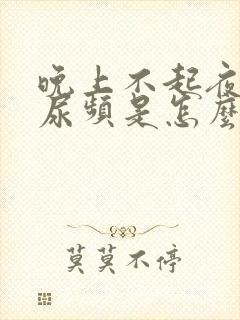 晚上不起夜
尿頻是怎麼
莫莫不停